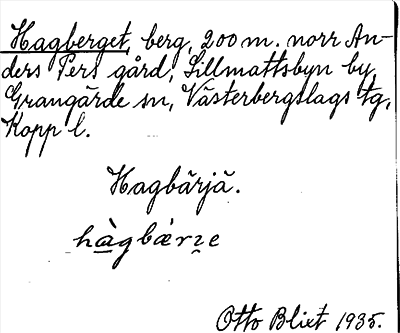 Hagberget, berg, 200 m. norr An-
ders Pers gård, Sillmattsbyn by,
Grangärde sn, Västerbergslags tg,
Kopp l.
Hagbärjä.
hàgbærze
Otto Blixt 1935.